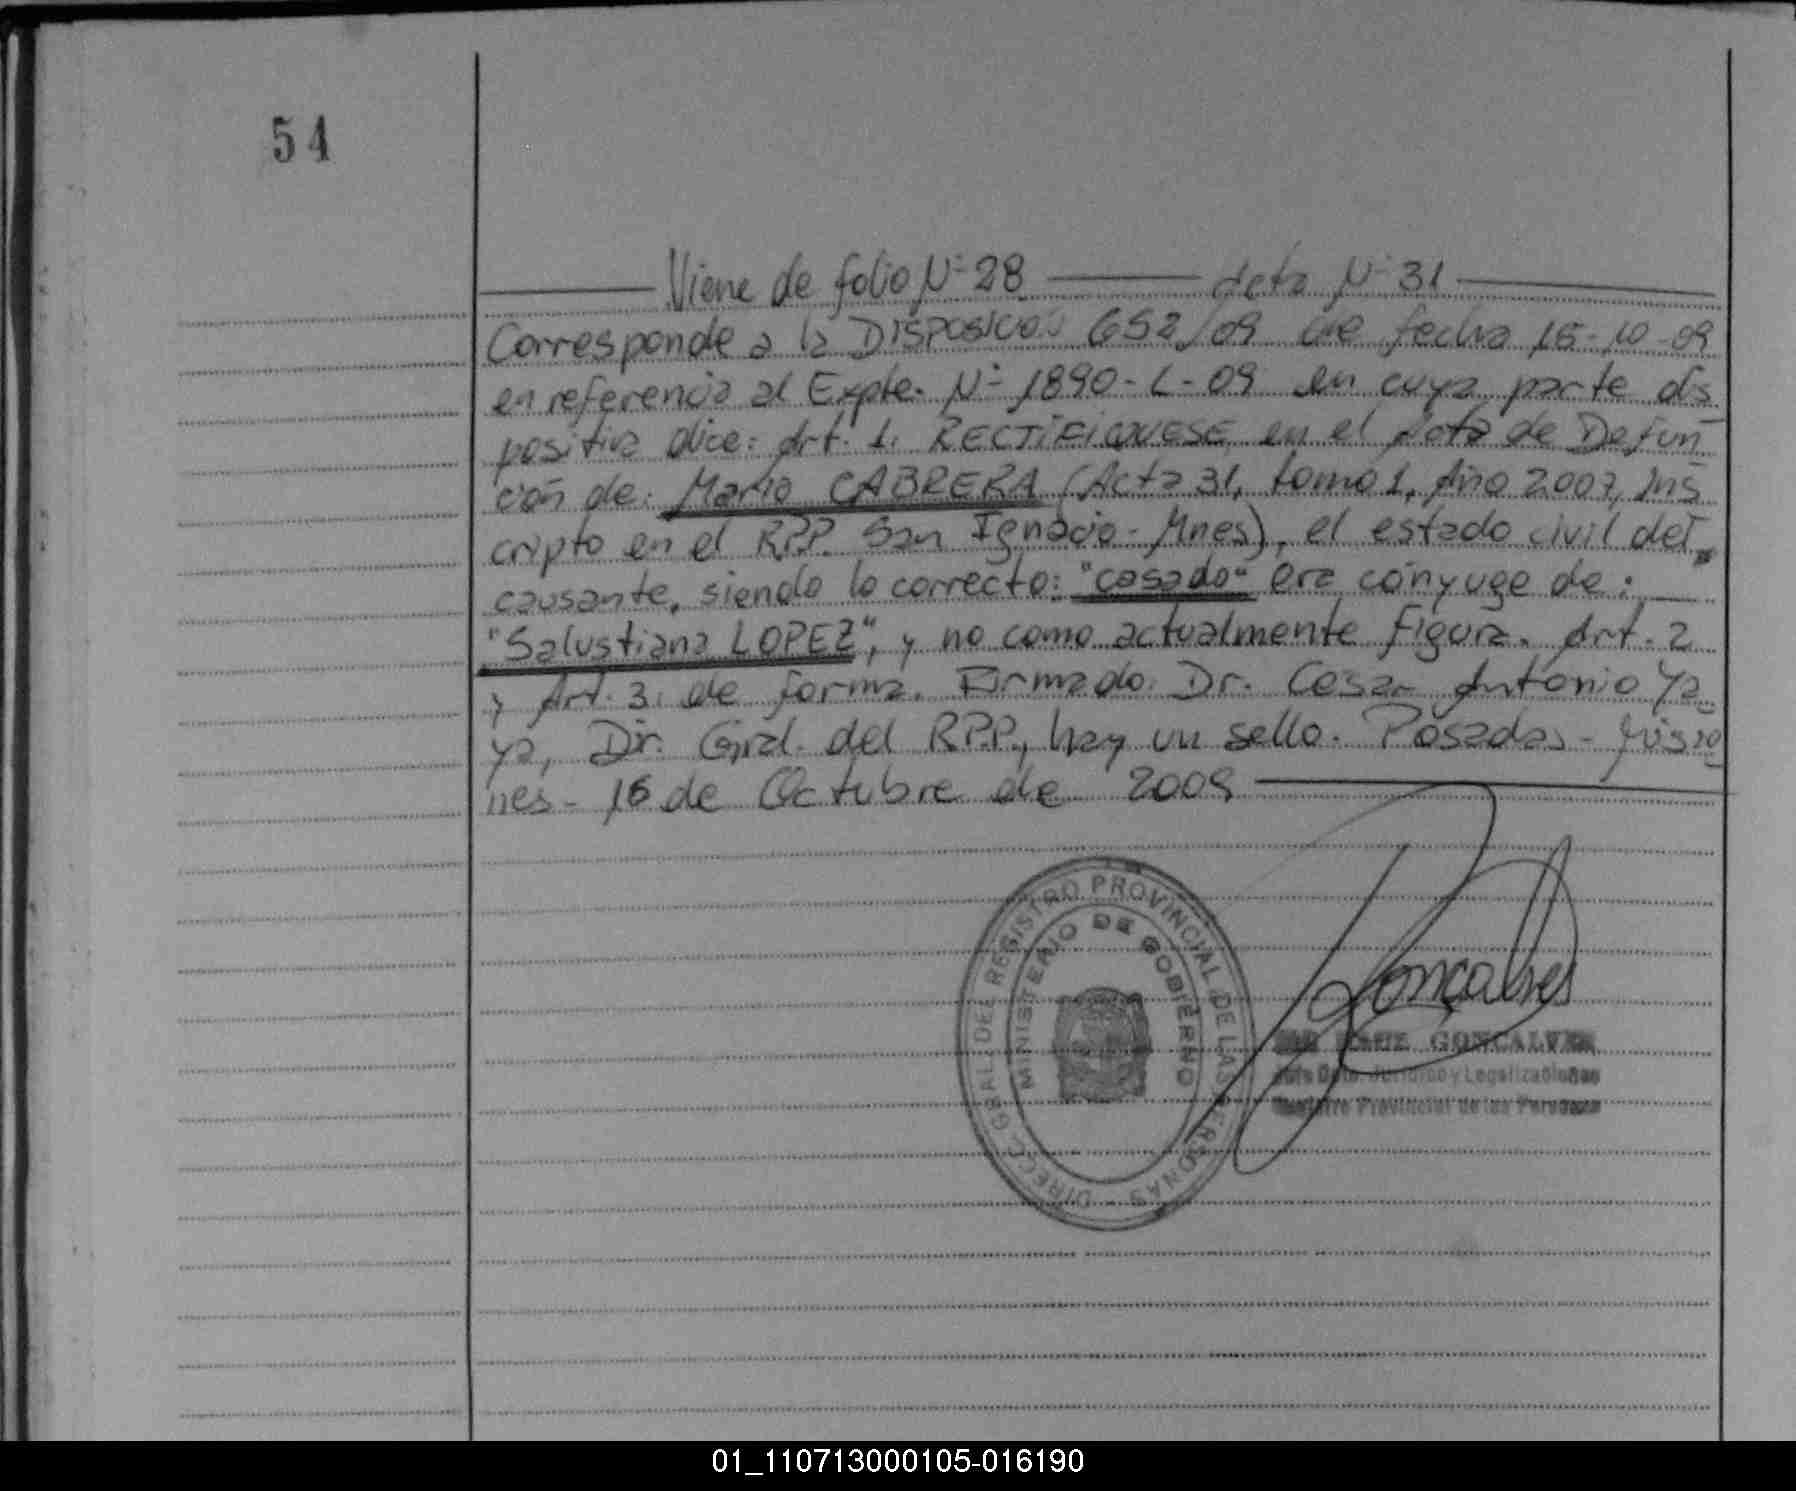 54
Viene de folio Nº 28 Acta Nº 31
Corresponde a la DISPOSICION 652/09 de fecha 15-10-09
en referencia al Expte. Nº 1890-L-09 en cuya parte dis
positiva dice: Art. 1. RECTIFIQUESE en el Acta de Defun
ción de: Mario CABRERA (Acta 31, tomo 1, Año 2007, Ins
cripto en el RPP. San Ignacio - Mnes), el estado civil del
causante, siendo lo correcto: "casado" era cónyuge de:
"Salustiana LOPEZ", y no como actualmente figura. Art. 2
y Art. 3. de forma. Firmado: Dr. Cesar Antonio Ya
ya, Dir. Gral. del RPP., hay un sello. Posadas - Misio
nes - 16 de Octubre de 2009
DIRECC. GRAL. DEL REGISTRO PROVINCIAL DE LAS PERSONAS
MINISTERIO DE GOBIERNO
Goncalves
RAUL GONCALVES
Jefe Dpto. Jurídico y Legalizaciones
Registro Provincial de las Personas
01_110713000105-016190